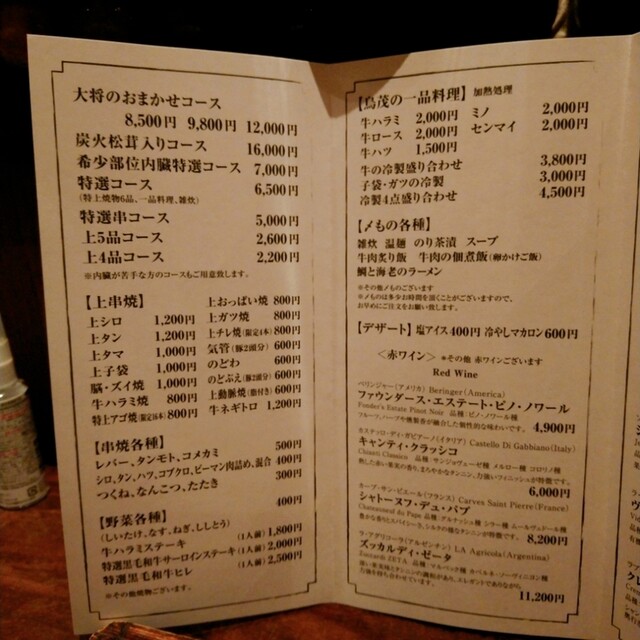 大将のおまかせコース
8,500円 9,800円 12,000円
炭火松茸入りコース 16,000円
希少部位内臓特選コース 7,000円
特選コース 6,500円
(特上焼物6品、一品料理、雑炊)
特選串コース 5,000円
上5品コース 2,600円
上4品コース 2,200円
※内臓が苦手な方のコースもご用意致します。
【上串焼】
上シロ 1,200円
上タン 1,200円
上タマ 1,000円
上子袋 1,000円
脳・ズイ焼 1,000円
牛ハラミ焼 800円
特上アゴ焼(限定16本) 800円
上おっぱい焼 800円
上ガツ焼 800円
上チレ焼(限定4本) 800円
気管(豚2頭分) 600円
のどわ 600円
のどぶえ(豚2頭分) 600円
上動脈焼(脂付き) 600円
牛ネギトロ 1,200円
【串焼各種】
レバー、タンモト、コメカミ 500円
シロ、タン、ハツ、コブクロ、ピーマン肉詰め、混合 400円
つくね、なんこつ、たたき 300円
【野菜各種】 400円
(しいたけ、なす、ねぎ、ししとう)
牛ハラミステーキ (1人前) 1,800円
特選黒毛和牛サーロインステーキ (1人前) 2,000円
特選黒毛和牛ヒレ (1人前) 2,500円
※その他焼物ございます。
【鳥茂の一品料理】 加熱処理
牛ハラミ 2,000円
牛ロース 2,000円
牛ハツ 1,500円
ミノ 2,000円
センマイ 2,000円
牛の冷製盛り合わせ 3,800円
子袋・ガツの冷製 3,000円
冷製4点盛り合わせ 4,500円
【〆もの各種】
雑炊 温麺 のり茶漬 スープ
牛肉炙り飯 牛肉の佃煮飯(卵かけご飯)
鯛と海老のラーメン
※その他〆ものございます
※〆ものは多少お時間を頂くことがございますので、
お早めにご注文をお願い致します。
【デザート】 塩アイス400円 冷やしマカロン600円
<赤ワイン> ※その他 赤ワインございます
Red Wine
ベリンジャー(アメリカ) Beringer(America)
ファウンダース・エステート・ピノ・ノワール
Founder's Estate Pinot Noir 品種:ピノ・ノワール種
4,900円
カステッロ・ディ・ガビアーノ(イタリア) Castello Di Gabbiano(Italy)
キャンティ・クラッシコ
Chianti Classico 品種:サンジョヴェーゼ種 メルロー種 コロリノ種
6,000円
カーブ・サン・ピエール(フランス) Carves Saint Pierre(France)
シャトーヌフ・デュ・パプ
8,200円
ラ・アグリコーラ(アルゼンチン) LA Agricola(Argentina)
ズッカルディ・ゼータ
11,200円